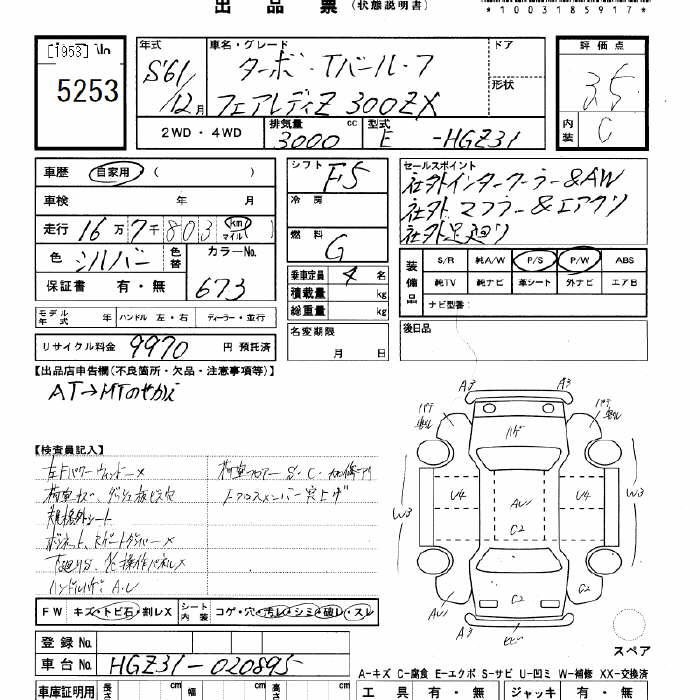 出品票 (状態説明書)
*1003185917*
[1953]
5253
年式
S61
12月
車名・グレード
ターボ・Tバールーフ
フェアレディZ 300ZX
ドア
形状
評価点
3.5
内装
C
2WD・4WD
排気量 3000 cc
型式 E -HGZ31
車歴 自家用 ( )
車検 年 月
走行 16万7千803 km マイル
色 シルバー 色替
カラーNo. 673
保証書 有・無
シフト F5
冷房
燃料 G
乗車定員 4 名
積載量 kg
総重量 kg
名変期限
月 日
セールスポイント
社外インタークーラー&AW
社外マフラー&エアクリ
社外足廻り
装備品
S/R 純A/W P/S P/W ABS
純TV 純ナビ 革シート 外ナビ エアB
ナビ型番:
後日品
モデル年式 年 ハンドル 左・右 ディーラー・並行
リサイクル料金 9970 円 預託済
【出品店申告欄(不良箇所・欠品・注意事項等)】
AT→MTのせかえ
【検査員記入】
左FパワーウィンドーX
規格外シート
A3 A3
ハゲ
U4 AU U4
W3 W3
C2
AU C2
A3
FW キズ・トビ石・割レX シート内装 コゲ・穴・汚レ・シミ・破レ・スレ
スペア
登録No.
車台No. HGZ31-020895
A-キズ C-腐食 E-エクボ S-サビ U-凹ミ W-補修 XX-交換済
車庫証明用 cm 幅 cm 高さ cm
工具 有・無 ジャッキ 有・無